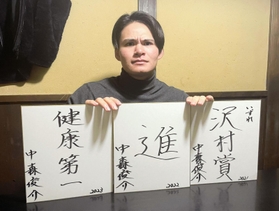 健康第一
中森俊介
2023
進
中森俊介
2022
いずれ
沢村賞
中森俊介
2021